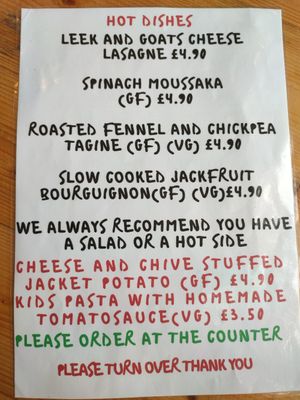 HOT DISHES
LEEK AND GOATS CHEESE
LASAGNE £4.90
SPINACH MOUSSAKA
(GF) £4.90
ROASTED FENNEL AND CHICKPEA
TAGINE (GF) (VG) £4.90
SLOW COOKED JACKFRUIT
BOURGUIGNON(GF) (VG)£4.90
WE ALWAYS RECOMMEND YOU HAVE
A SALAD OR A HOT SIDE
CHEESE AND CHIVE STUFFED
JACKET POTATO (GF) £4.90
KIDS PASTA WITH HOMEMADE
TOMATOSAUCE(VG) £3.50
PLEASE ORDER AT THE COUNTER
PLEASE TURN OVER THANK YOU